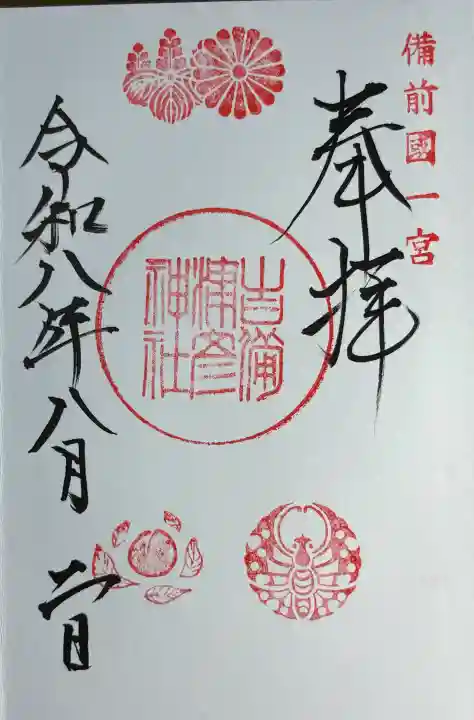 備前國一宮
奉拝
吉備
津彦
神社
令和八年八月二日